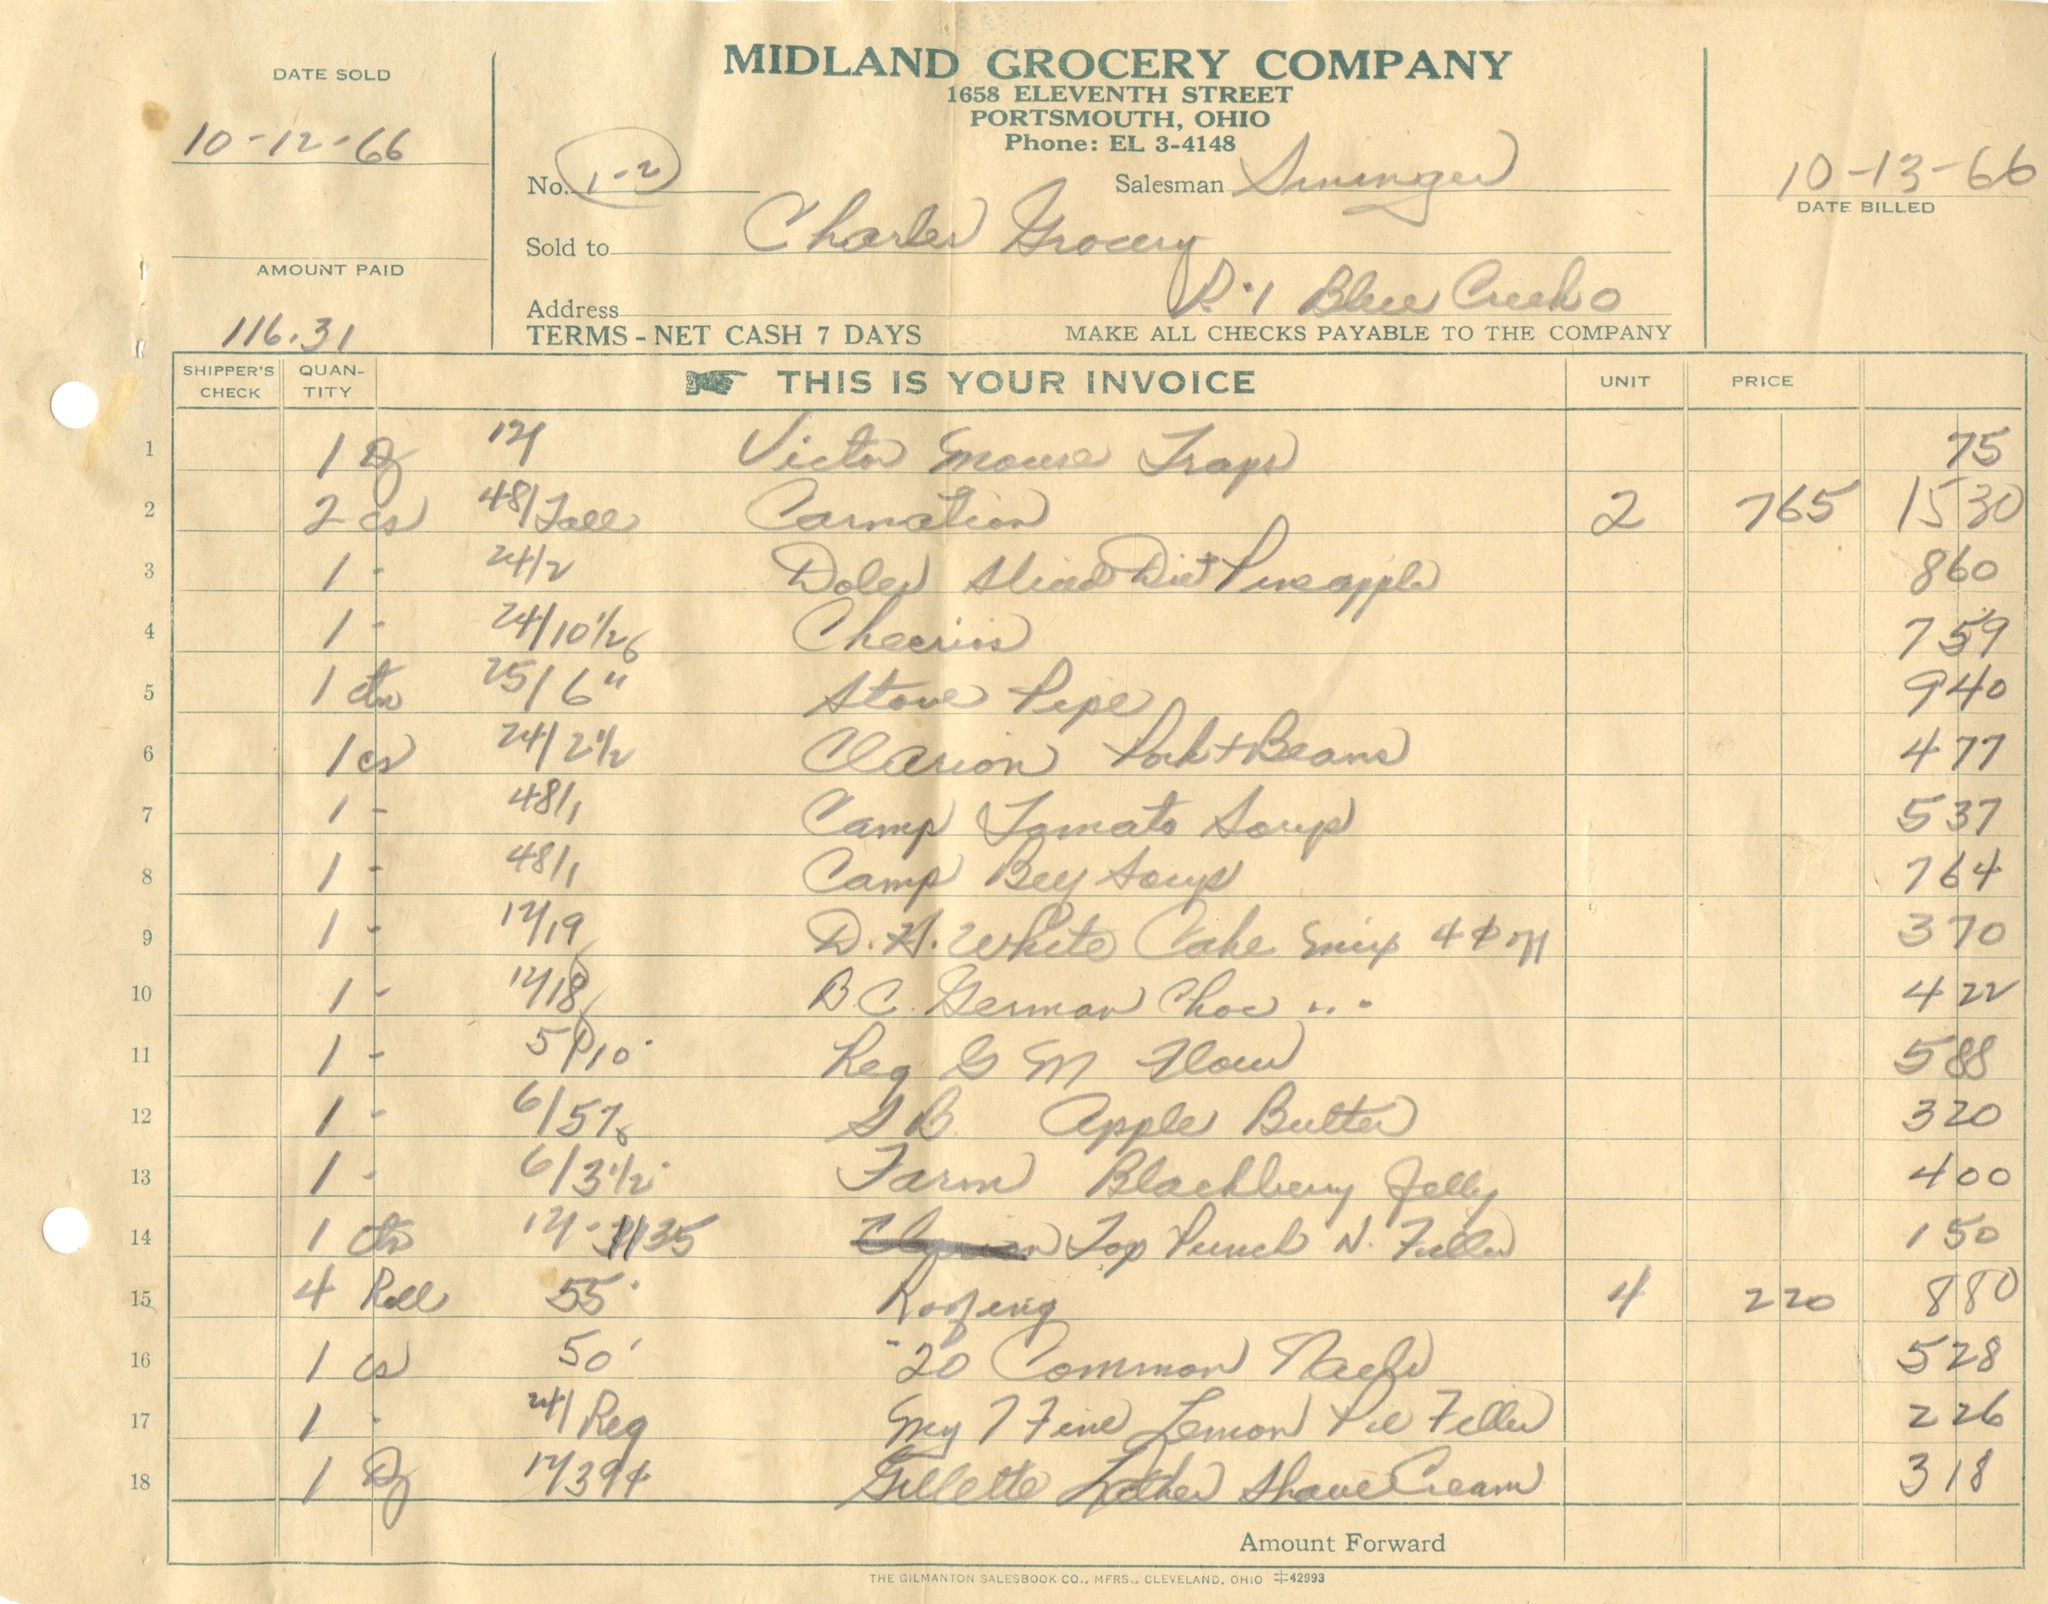 MIDLAND GROCERY COMPANY
1658 ELEVENTH STREET
PORTSMOUTH, OHIO
Phone: EL 3-4148
DATE SOLD
10-12-66
No. 1-2
Salesman
10-13-66
DATE BILLED
Sold to Charles Grocery
AMOUNT PAID
116.31
Address R.1 Blue Creek O
TERMS - NET CASH 7 DAYS MAKE ALL CHECKS PAYABLE TO THE COMPANY
SHIPPER'S CHECK QUANTITY THIS IS YOUR INVOICE UNIT PRICE
1 1 Dz 12/ Victor Mouse Traps 75
2 2 cs 48/Tall Carnation 2 765 1530
3 1 - 24/2 Doles Sliced Diet Pineapple 860
4 1 - 24/10 1/2 Cheerios 759
5 1 ctn 25/6" Stove Pipe 940
6 1 cs 24/2 1/2 Clarion Pork + Beans 477
7 1 - 48/1 Camp Tomato Soup 537
8 1 - 48/1 Camp Soup 764
9 1 - 12/19 D.H. White Cake Mix 4¢ off 370
10 1 - 12/18 B.C. German Choc " " 422
11 1 - 5/10 Reg G M Flour 588
12 1 - 6/57 Apple Butter 320
13 1 - 6/3 1/2 Farm Blackberry Jelly 400
14 1 ctn 12/ 35 Top Punch N. Filler 150
15 4 Roll 55 Roofing 4 220 880
16 1 cs 50 20 Common Nails 528
17 1 - 24/Reg My T Fine Lemon Pie Filler 226
18 1 Dz 12/39¢ Gillette Lather Shave Cream 318
Amount Forward
THE GILMANTON SALESBOOK CO., MFRS., CLEVELAND, OHIO ‡42993